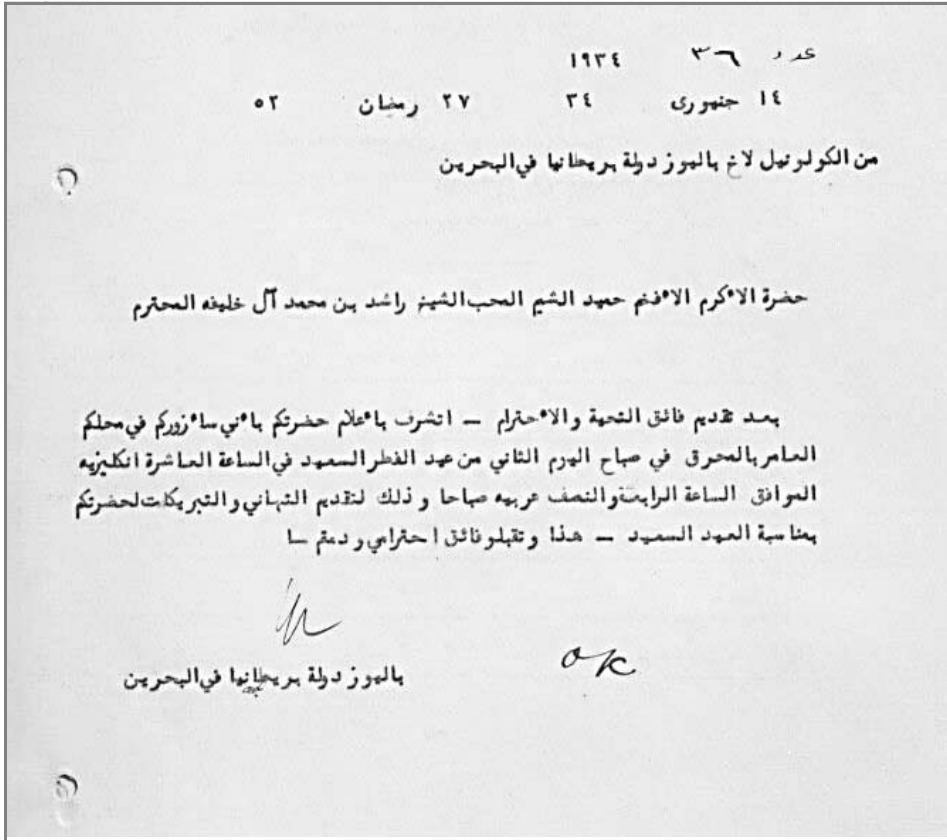 عدد ٣٦ ١٩٣٤
١٤ جنيورى ٣٤ ٢٧ رمضان ٥٢
من الكولونيل لاخ باليوز دولة بريطانيا في البحرين
حضرة الاٴكرم الاٴفخم حميد الشيم المحب الشيخ راشد بن محمد آل خليفه المحترم
بعد تقديم فائق التحية والاٴحترام — اتشرف باٴعلام حضرتكم باٴني ساٴزوركم في محلكم
العامر بالمحرق في صباح اليوم الثاني من عيد الفطر السعيد في الساعة العاشرة انكليزيه
الموافق الساعة الرابعة والنصف عربيه صباحا و ذلك لتقديم التهاني و التبريكات لحضرتكم
بمناسبة العيد السعيد — هذا و تقبلو فائق احترامي و دمتم سا
OK
باليوز دولة بريطانيا في البحرين